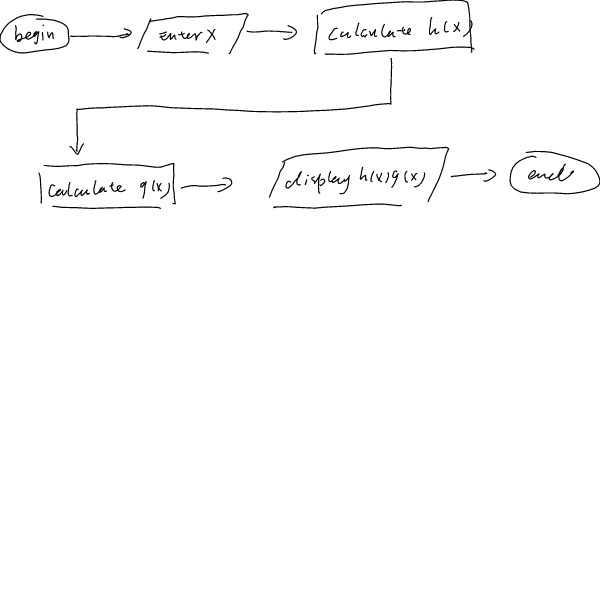 begin
Enter X
Calculate h(x)
Calculate g(x)
display h(x) g(x)
end